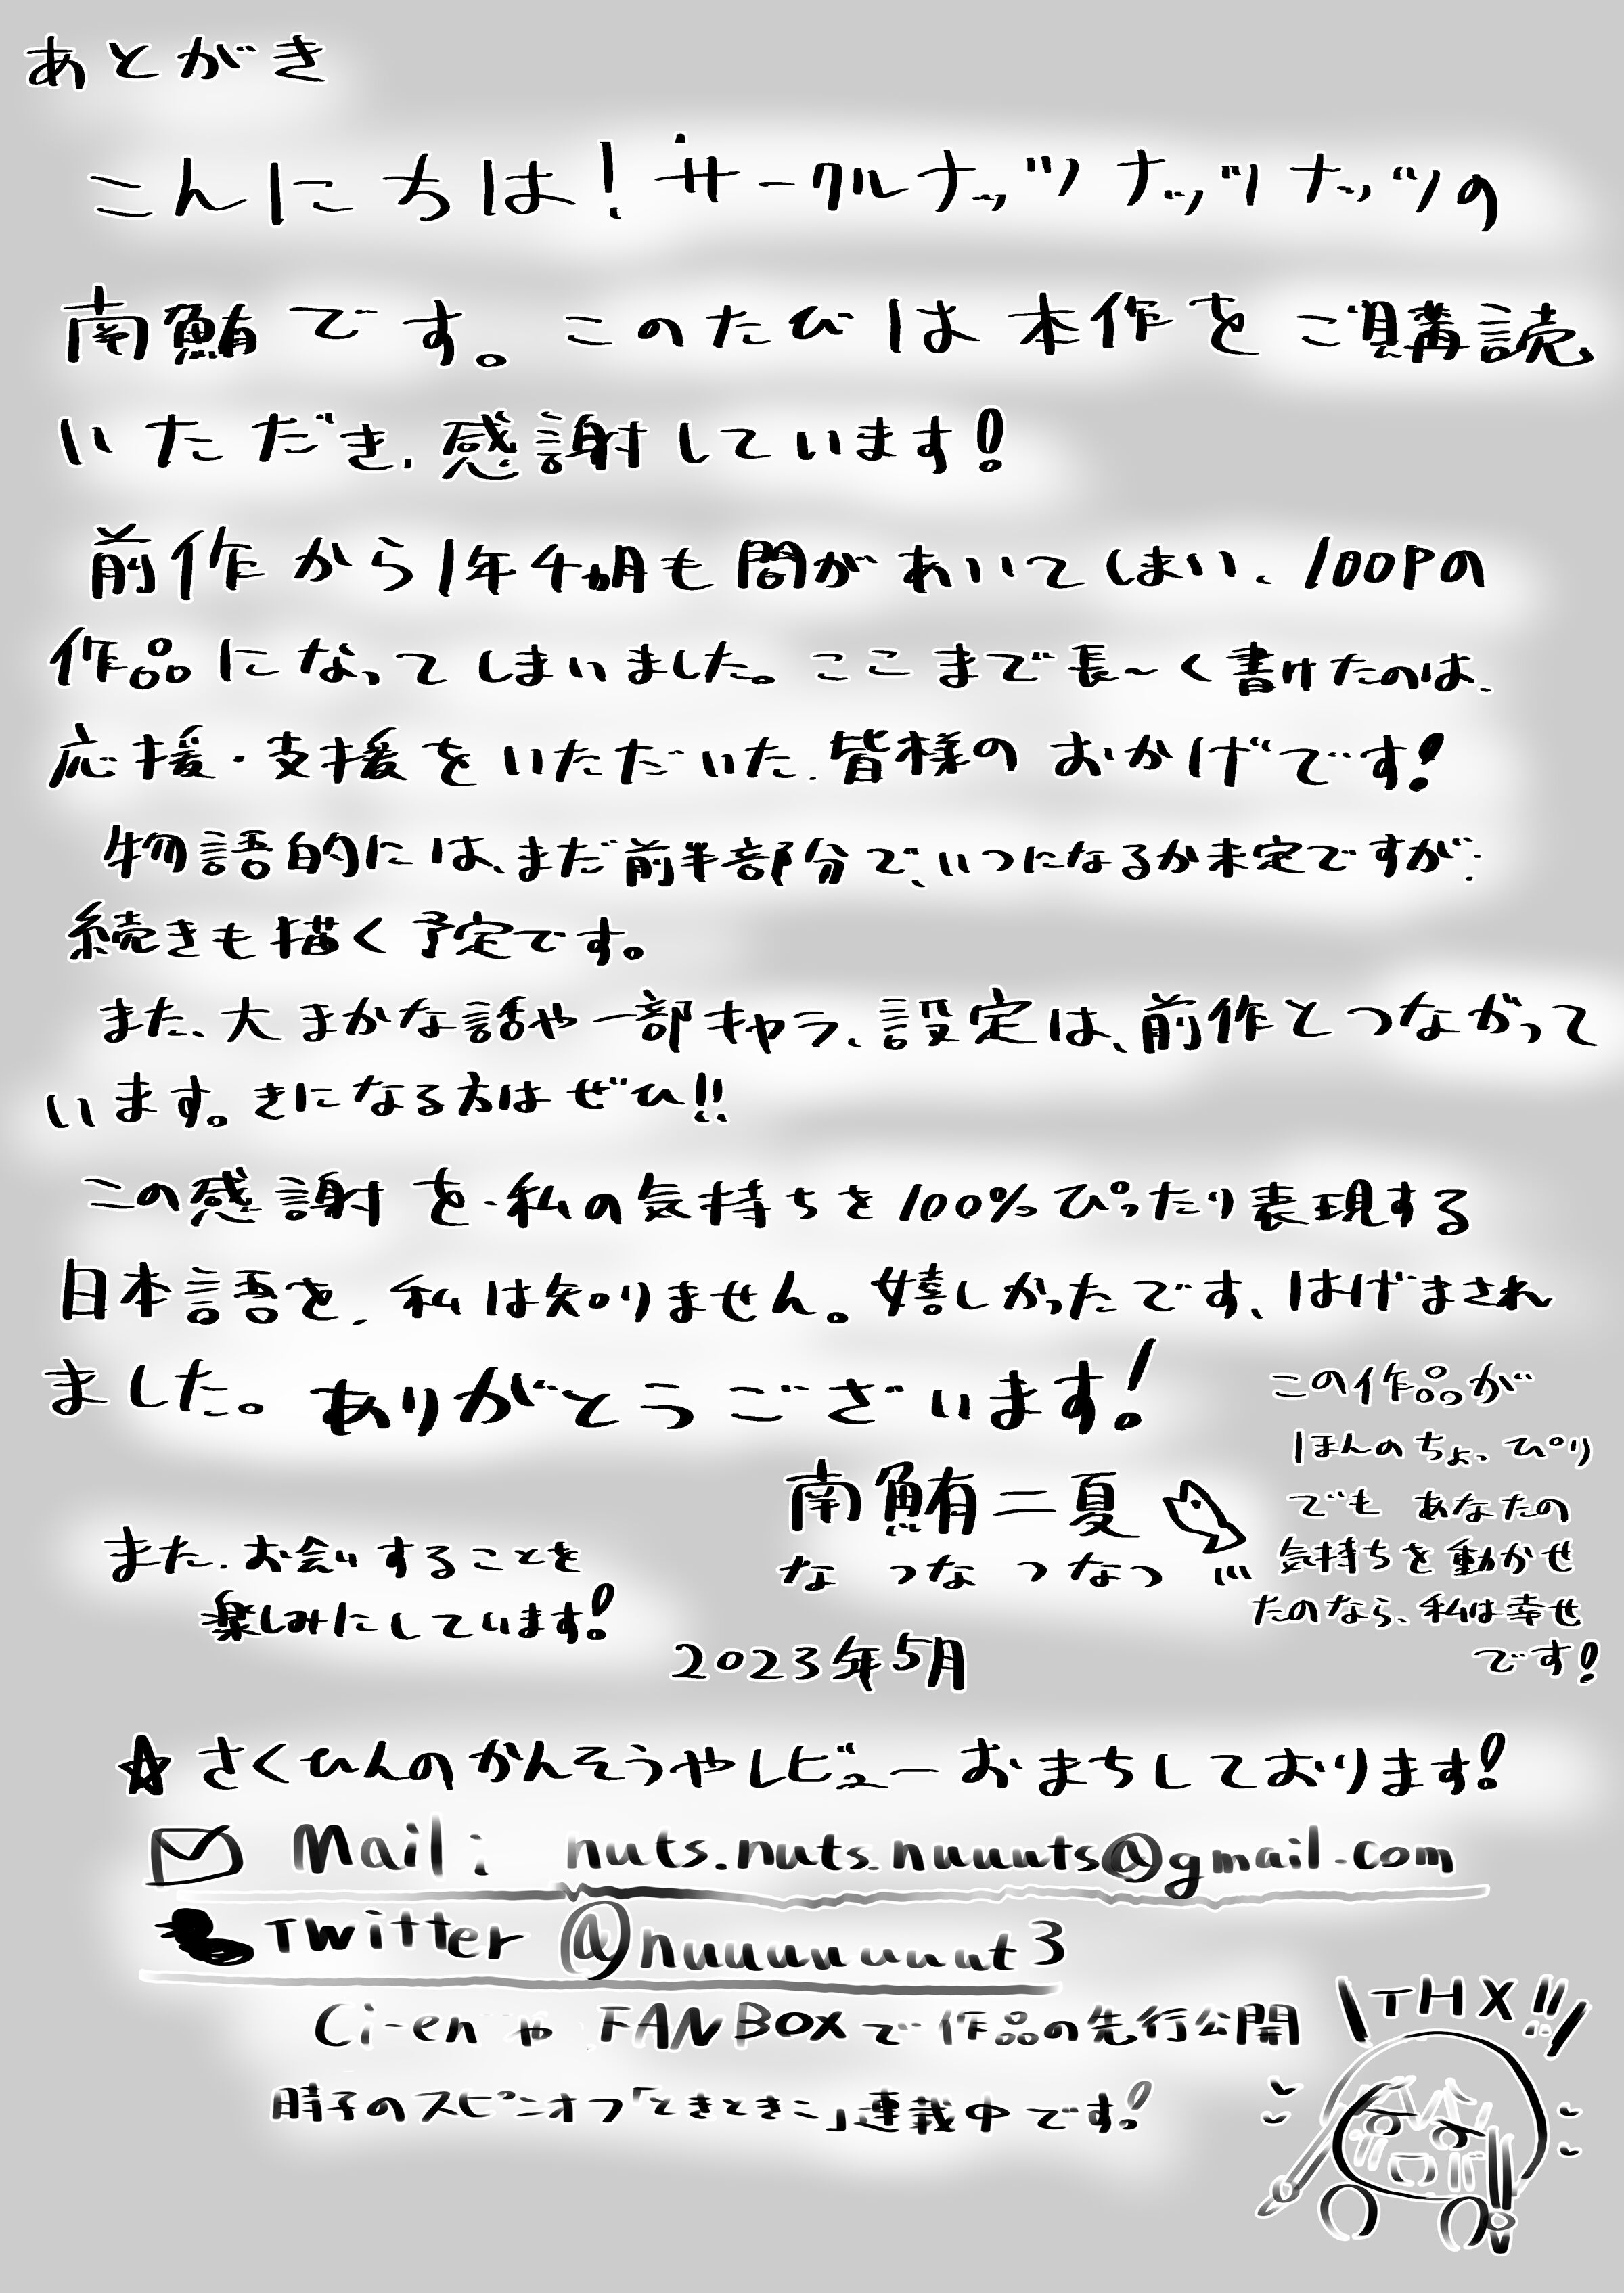 あとがき
こんにちは!サークルナッツナッツナッツの
南鮪です。このたびは本作をご購読
いただき、感謝しています!
前作から1年4ヵ月も間があいてしまい、100Pの
作品になってしまいました。ここまで長〜く書けたのは、
応援・支援をいただいた、皆様のおかげです!
物語的には、まだ前半部分で、いつになるか未定ですが、
続きも描く予定です。
また、大まかな話や一部キャラ、設定は、前作とつながって
います。きになる方はぜひ!!
この感謝を、私の気持ちを100%ぴったり表現する
日本語を、私は知りません。嬉しかったです、はげまされ
ました。ありがとうございます!
南鮪二夏
なつなつなつ
2023年5月
この作品が
ほんのちょっぴり
でもあなたの
気持ちを動かせ
たのなら、私は幸せ
です!
また、お会いすることを
楽しみにしています!
☆さくひんのかんそうやレビューおまちしております!
Mail: nuts.nuts.nuuuts@gmail.com
Twitter @nuuuuuuut3
Ci-enやFANBOXで作品の先行公開
時子のスピンオフ「ときときこ」連載中です!
THX!!